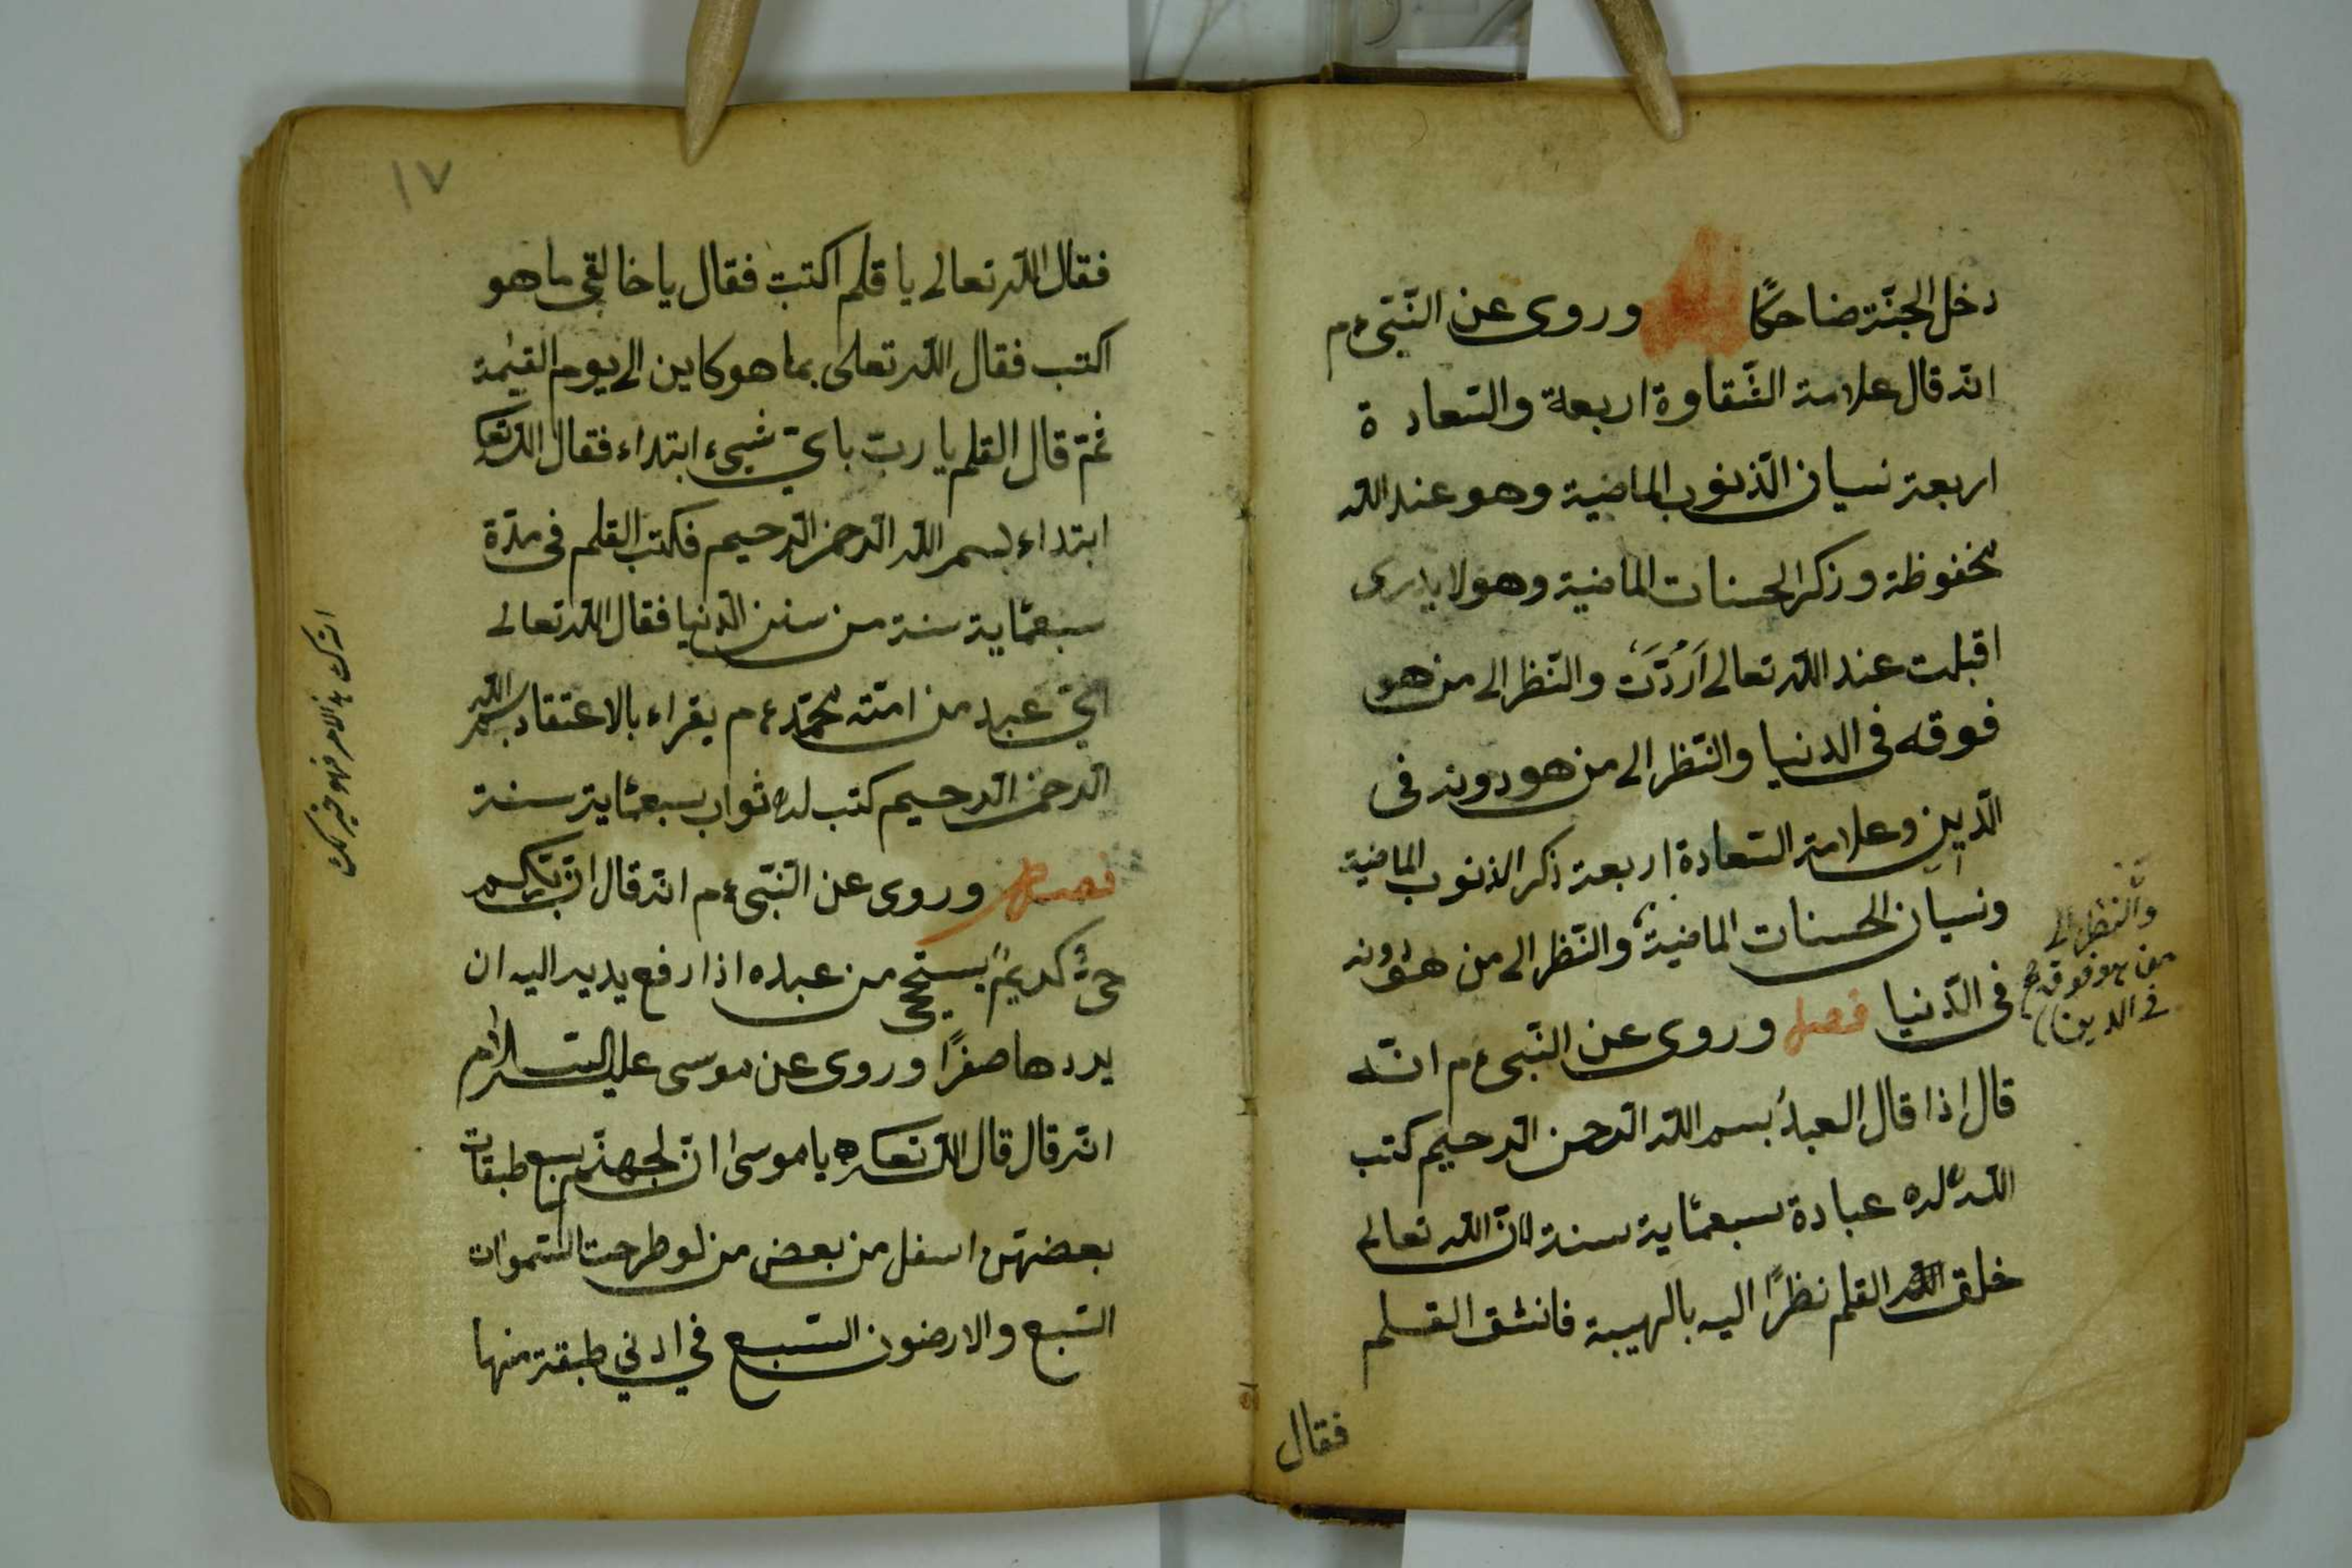 دخل الجنّة ضاحكًا وروى عن النّبىّ ءم
انّه قال علامة الشّقاوة اربعة والسّعادة
اربعة نسيان الذّنوب الماضية وهو عند الله
محفوظة وذكر الحسنات الماضية وهو لا يدرى
اقبلت عند الله تعالى اَرُدَّتْ والنّظر الى من هو
فوقه فى الدنيا والنّظر الى من هو دونه فى
الدّين وعلامة السّعادة اربعة ذكر الذنوب الماضية
ونسيان الحسنات الماضية والنّظر الى من هو دونه
والنّظر الى
من هو فوقه
فى الدين
فى الدّنيا فصل وروى عن النّبى ءم انّه
قال اذا قال العبدُ بسم الله الرّحمن الرّحيم كتب
اللّه له عبادة سبعمّاية سنة لانّ الله تعالى
خلق القلم نظرًا اليه بالهيبة فانشق القلم
فقال
١٧
فقال الله تعالى يا قلم اكتب فقال يا خالقى ما هو
اكتب فقال الله تعلى بما هو كاين الى يوم القيٰمة
ثمّ قال القلم يا ربّ باىّ شىء ابتداء فقال الله تعا
ابتداء بسم الله الرّحمن الرّحيم فكتب القلم فى مدّة
سبعمّاية سنة من سنن الدّنيا فقال الله تعالى
اىّ عبد من امّته محمّد ءم يقراء بالاعتقاد بسم الله
الرّحمن الرّحيم كتب له ثواب سبعمّاية سنة
فصل وروى عن النّبىّ ءم انّه قال انّ ربّكم
حىٌّ كريمٌ يستحيى من عبده اذا رفع يديه اليه ان
يردها صفرًا وروى عن موسى عليه السّلام
انّه قال قال الله تعا يا موسى انّ لجهنّم سبع طبقات
بعضهنّ اسفل من بعض من لو طرحت السّموات
السّبع والارضون السّبع في ادني طبقة منها